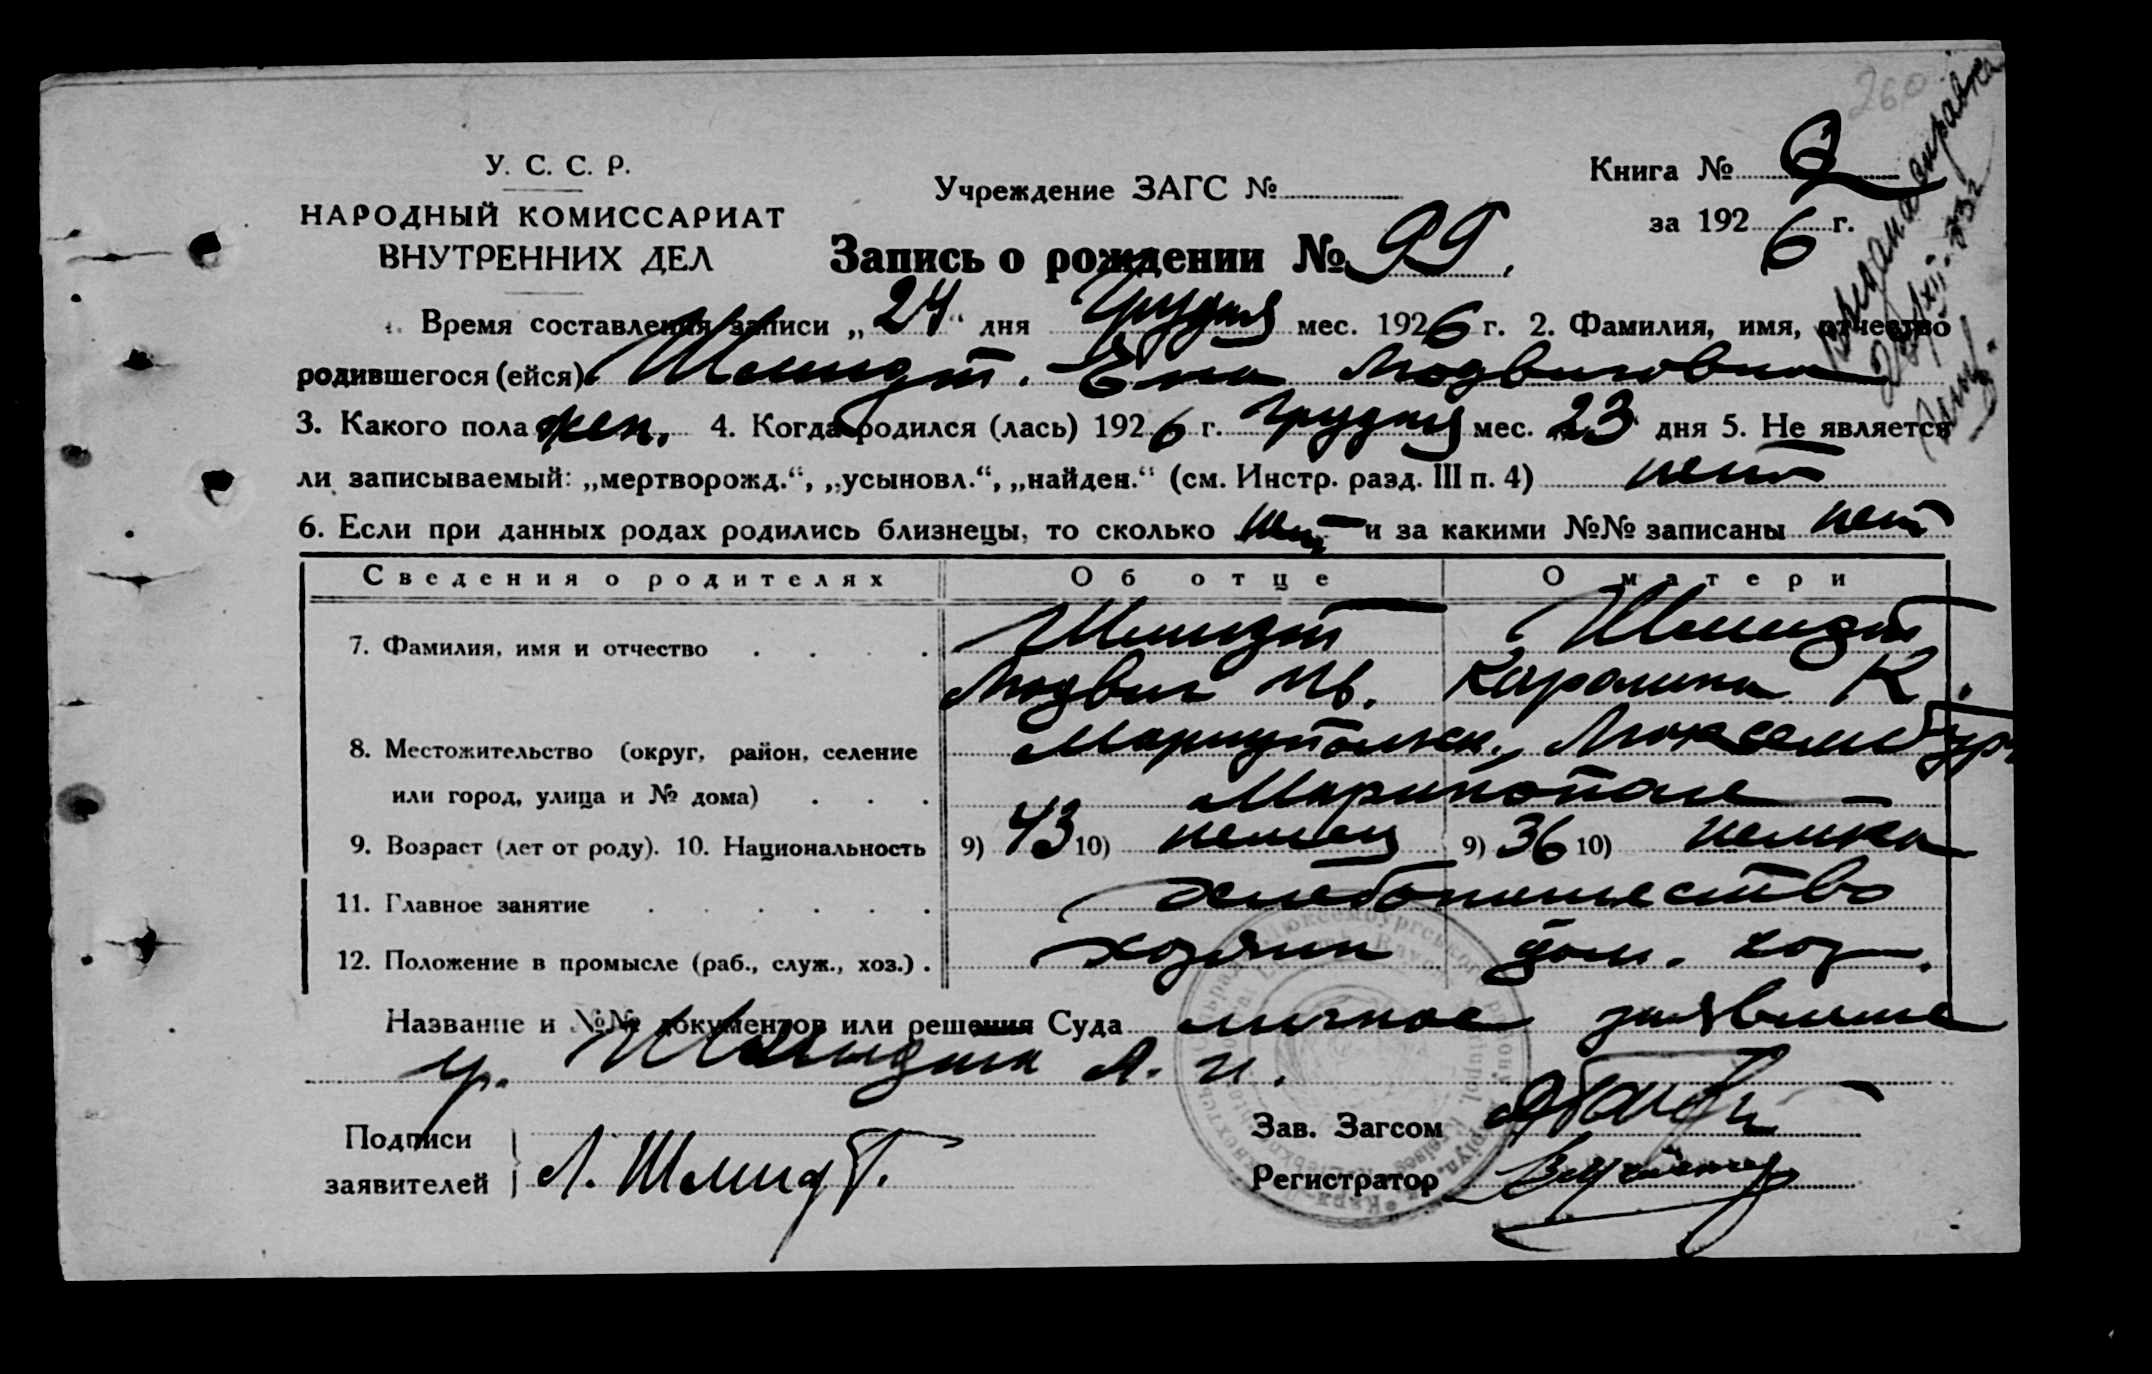 260
У. С. С. Р.
НАРОДНЫЙ КОМИССАРИАТ
ВНУТРЕННИХ ДЕЛ
Учреждение ЗАГС №
Книга № 2
за 1926 г.
Выдана справка
Запись о рождении № 99
Время составления записи „24“ дня Грудня мес. 1926 г. 2. Фамилия, имя, отчество
родившегося (ейся) Шмидт. Ема Людвиговна
3. Какого пола жен. 4. Когда родился (лась) 1926 г. Грудня мес. „23“ дня 5. Не является
ли записываемый: „мертворожд.“, „усыновл.“, „найден.“ (см. Инстр. разд. III п. 4) нет
6. Если при данных родах родились близнецы, то сколько нет и за какими №№ записаны нет
Сведения о родителях Об отце О матери
7. Фамилия, имя и отчество Шмидт Шмидт
Людвиг Ив. Каролина К.
8. Местожительство (округ, район, селение Мариупольск., Люксембург
или город, улица и № дома) Мариинополе
9. Возраст (лет от роду). 10. Национальность 9) 43 10) немец 9) 36 10) немка
11. Главное занятие хлебопашество
12. Положение в промысле (раб., служ., хоз.) хозяин дом. хоз.
Название и №№ документов или решения Суда личное заявление
гр. Шмидта Л. И.
Подписи
заявителей Л. Шмидт.
Зав. Загсом
Регистратор